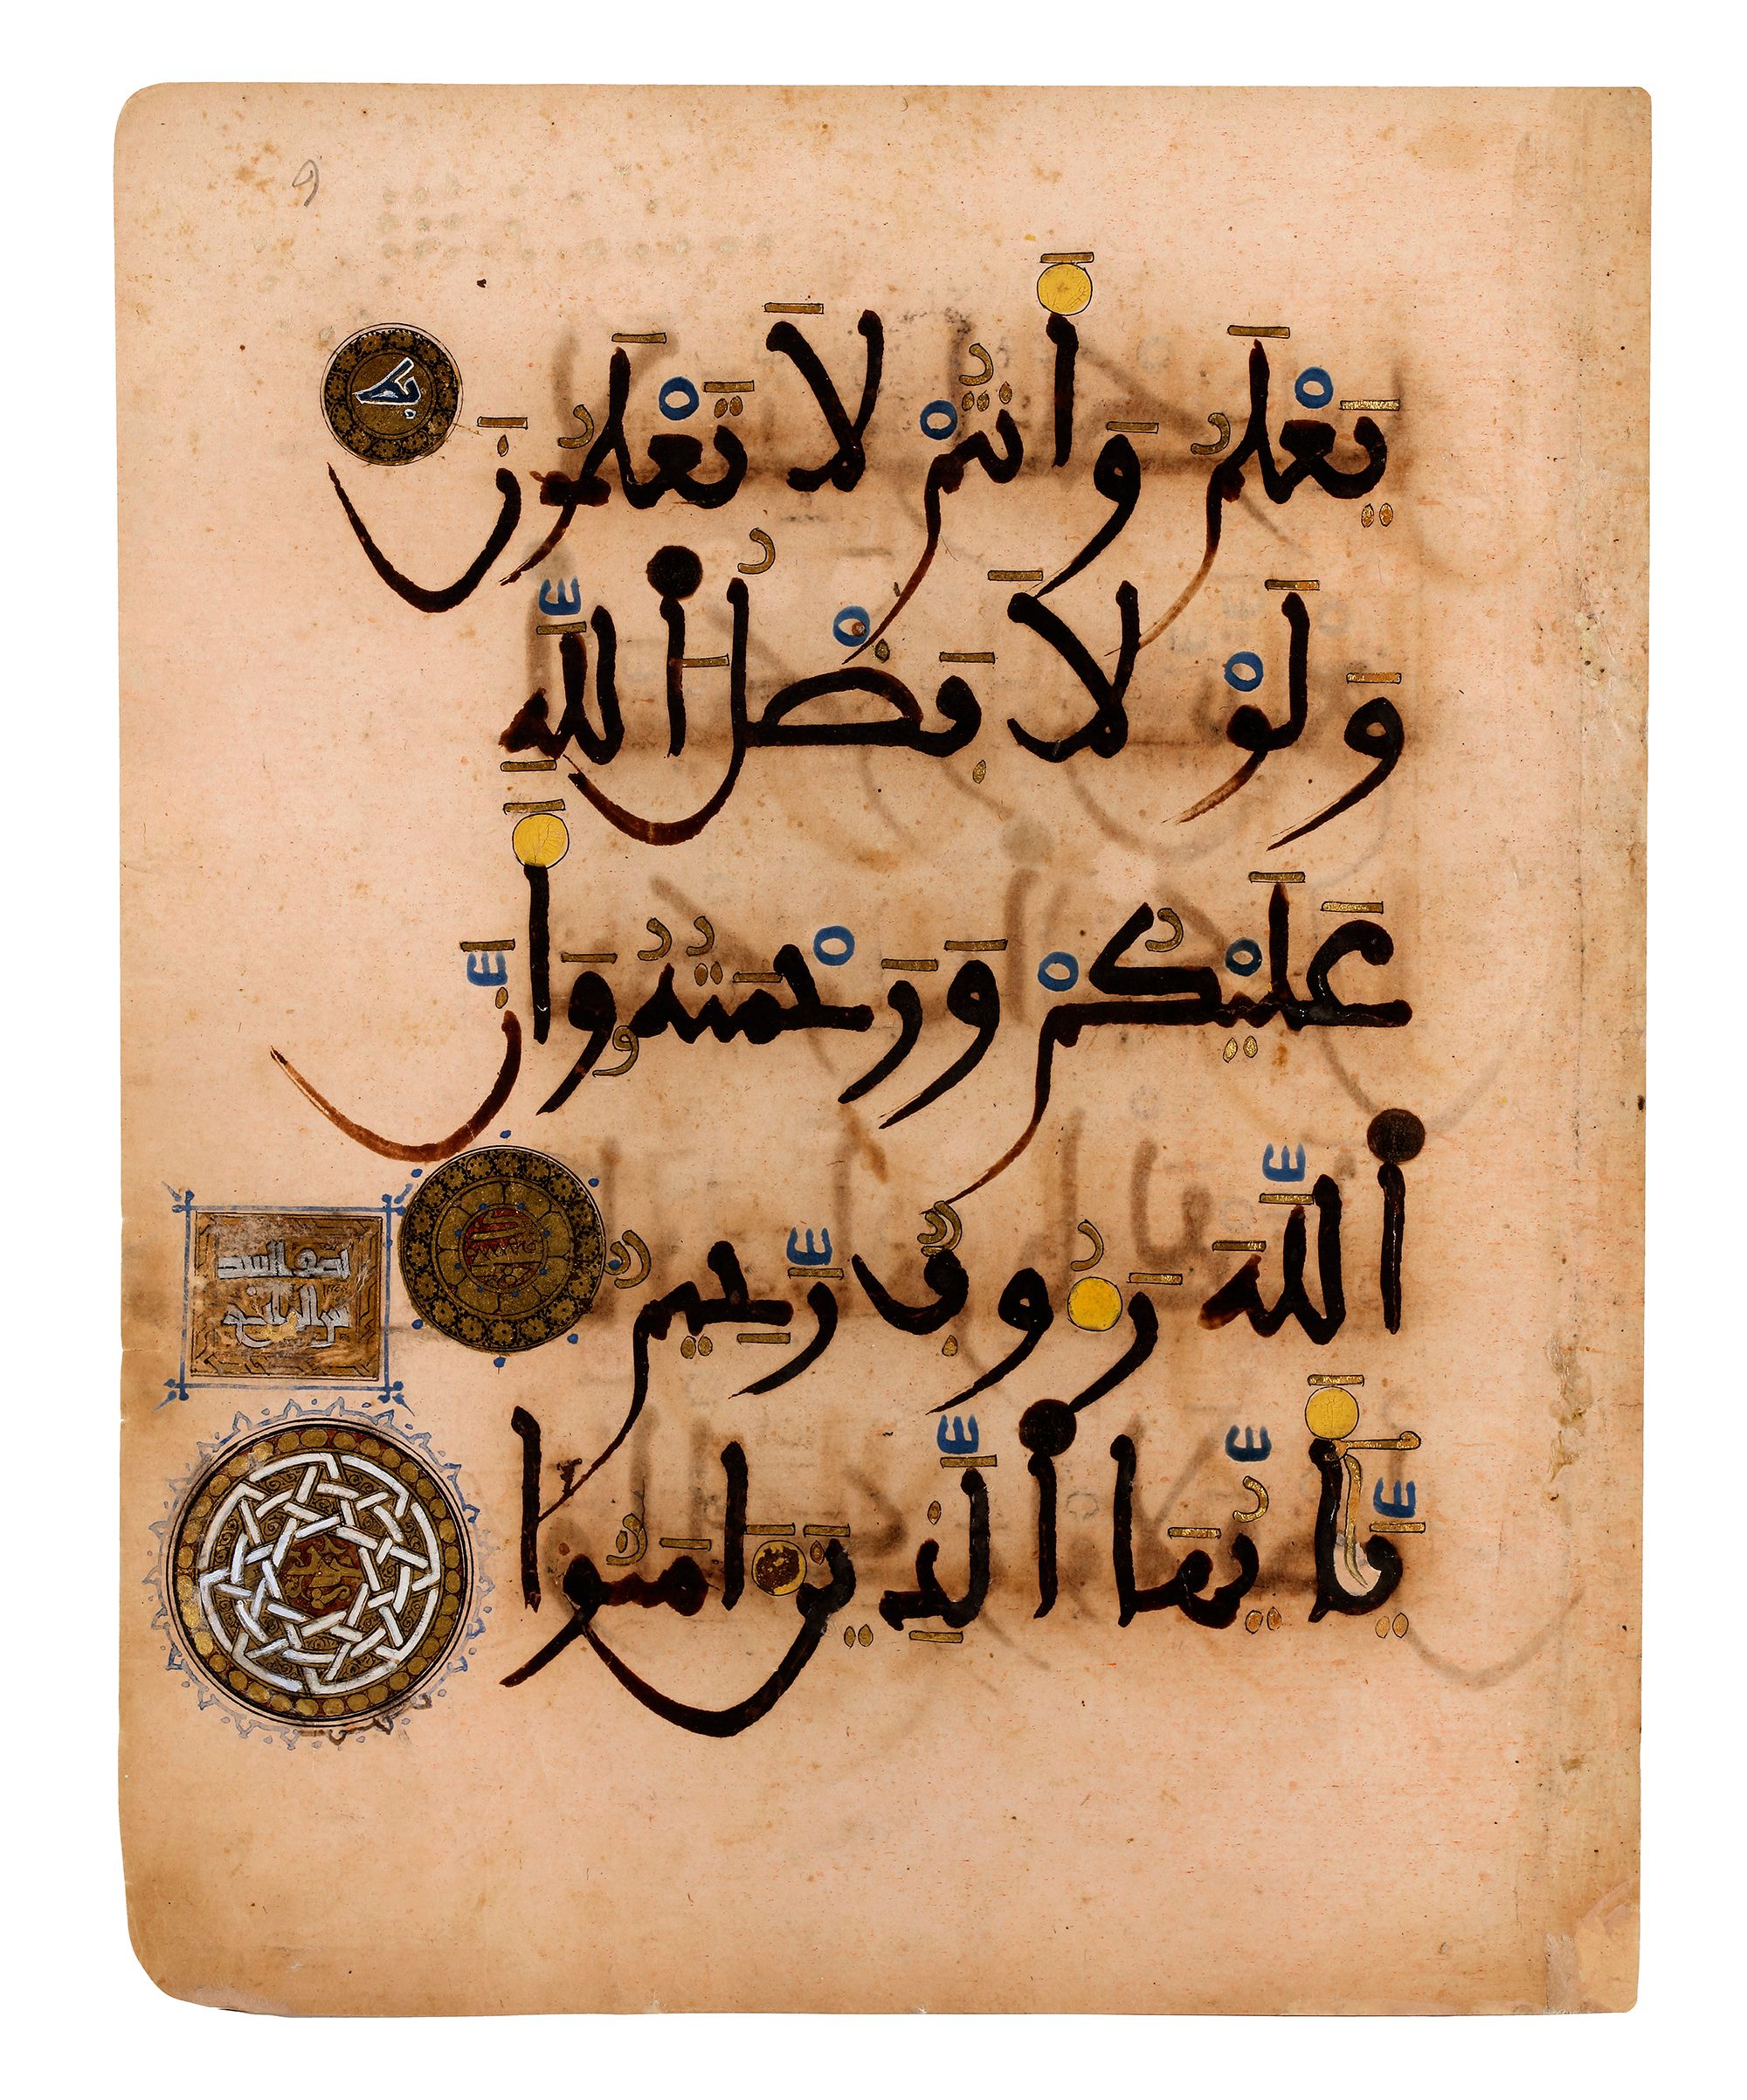 يَعْلَمُ وَأَنتُمْ لَا تَعْلَمُونَ
وَلَوْلَا فَضْلُ اللَّهِ
عَلَيْكُمْ وَرَحْمَتُهُ وَأَنَّ
اللَّهَ رَءُوفٌ رَّحِيمٌ
يَٰأَيُّهَا الَّذِينَ ءَامَنُوا